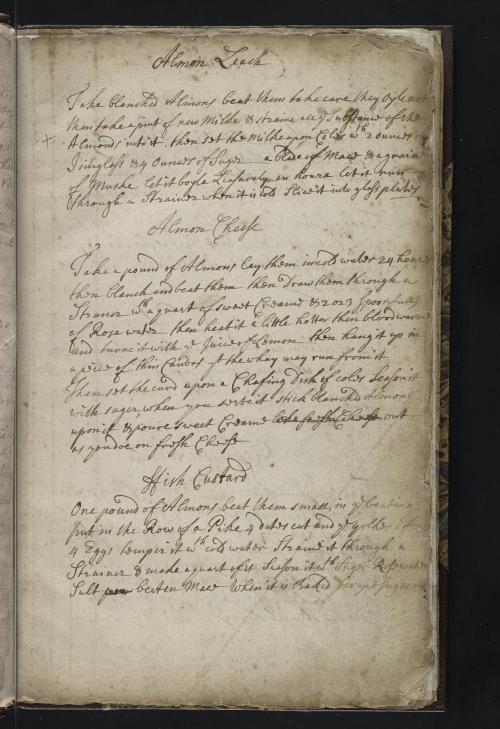 Almon Leach
Take blanched Almons beat them take care they Oyle not
then take a pint of new Milke & straine all ye Substance of the
Almonds into it, then set the Milke upon Coles wth 2 ounces
Isinglass & 4 Ounces of Suger a Blade of Mace & a graine
of Muske let it boyle Leasurely an houre let it run
through a Strainer when it is cold Slice it into glass plates
Almon Cheese
Take a pound of Almons lay them in cold water 24 houres
then blanch and beat them then Draw them through a
Strainer wth a quart of sweet Creame & 2 or 3 Spoonfulls
of Rose water then heat it a little hotter then blood warm
and turne it with ye Juice of Lemon then hang it up in
a peice of thin Canvas yt the whay may run from it
then set the curd upon a Chafing Dish of coles Season it
with suger, when you serve it stick blanched Almons
upon it & poure sweet Creame out
as you doe on fresh Cheese
Fish Custard
One pound of Almons beat them small, in ye beating
put in the Row of a Pike 4 dates cut and ye yolks of
4 Eggs temper it wth cold water Straine it through a
Strainer & make a quart of it Season it wth Suger Rosewater
Salt beaten Mace When it is Baked scrape Suger on